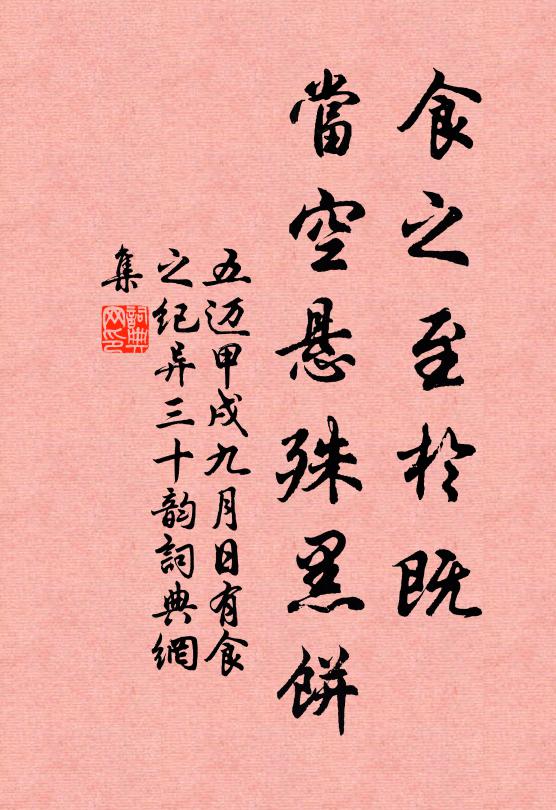 食之至於既
當空悬殊黑餅
五迈甲戌九月日有食
之纪异三十韵詞典網
集
詞典
网印